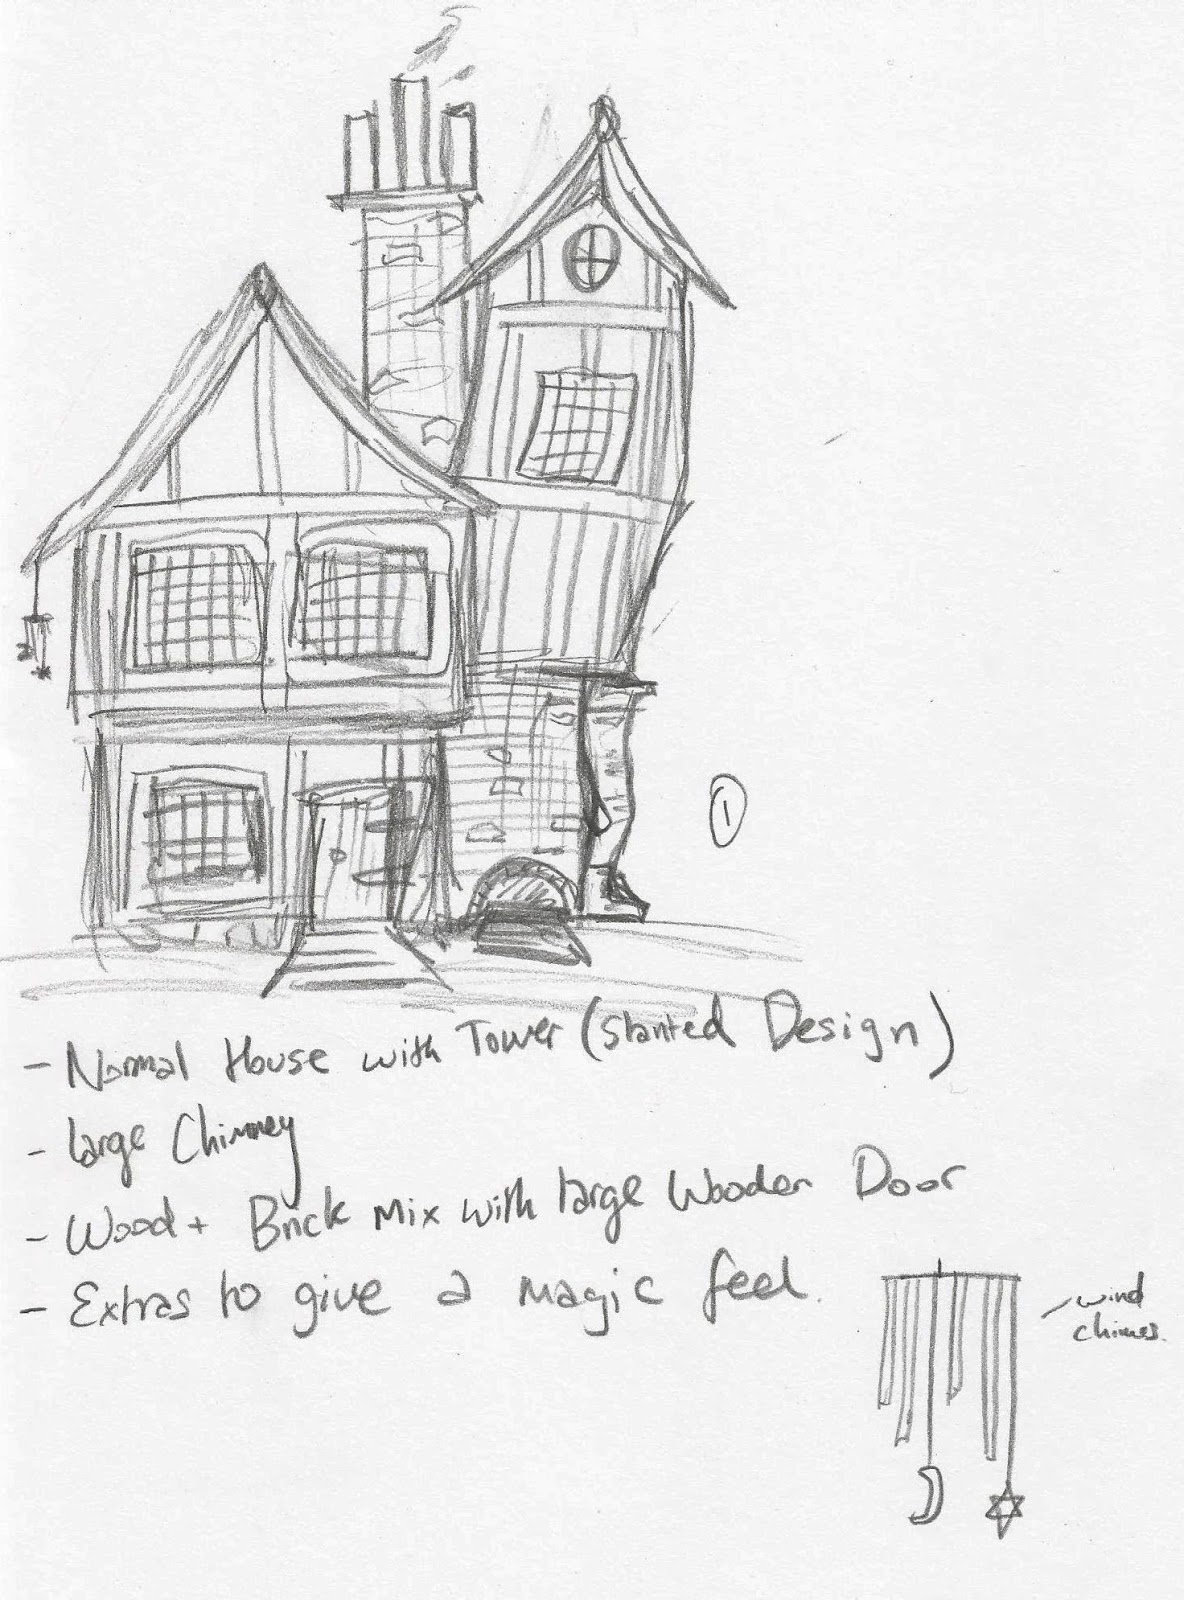 1
- Normal House with Tower (slanted Design)
- large Chimney
- Wood + Brick Mix with large Wooden Door
- Extras to give a magic feel.
wind
chimes.